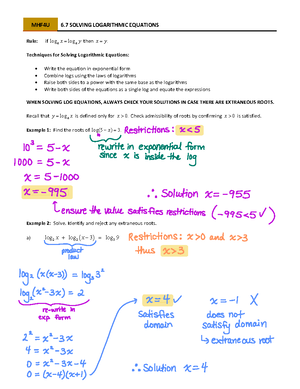 MHF4U 6.7 SOLVING LOGARITHMIC EQUATIONS
Rule: If logₐx = logₐy then x = y.
Techniques for Solving Logarithmic Equations:
• Write the equation in exponential form
• Combine logs using the laws of logarithms
• Raise both sides to a power with the same base as the logarithms
• Write both sides of the equations as a single log and equate the expressions
WHEN SOLVING LOG EQUATIONS, ALWAYS CHECK YOUR SOLUTIONS IN CASE THERE ARE EXTRANEOUS ROOTS.
Recall that y = logₐx is defined only for x > 0. Check admissibility of roots by confirming x > 0 is satisfied.
Example 1: Find the roots of log(5 − x) = 3 Restrictions: x < 5
10³ = 5 - x
rewrite in exponential form
since x is inside the log
1000 = 5 - x
x = 5 - 1000
x = -995
∴ Solution x = -955
ensure the value satisfies restrictions (-995 < 5 ✓)
Example 2: Solve. Identify and reject any extraneous roots.
a) x + (x − 3) = Restrictions: x > 0 and x > 3
product law
thus x > 3
log₂(x(x-3)) = log₂
log₂(x² - 3x) = 2
re-write in
exp. form
x = 4 ✓
satisfies
domain
x = -1 X
does not
satisfy domain
↳ extraneous root
2² = x² - 3x
4 = x² - 3x
0 = x² - 3x - 4
0 = (x-4)(x+1)
∴ Solution x = 4